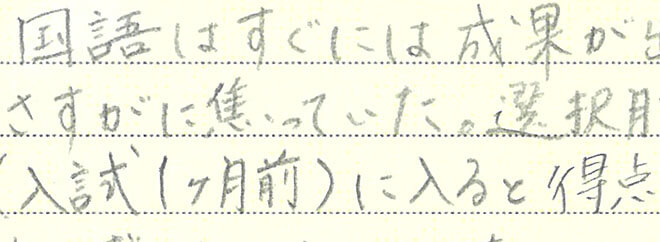 国語はすぐには成果が出
さすがに焦っていた。選択肢
(入試1ヶ月前)に入ると得点